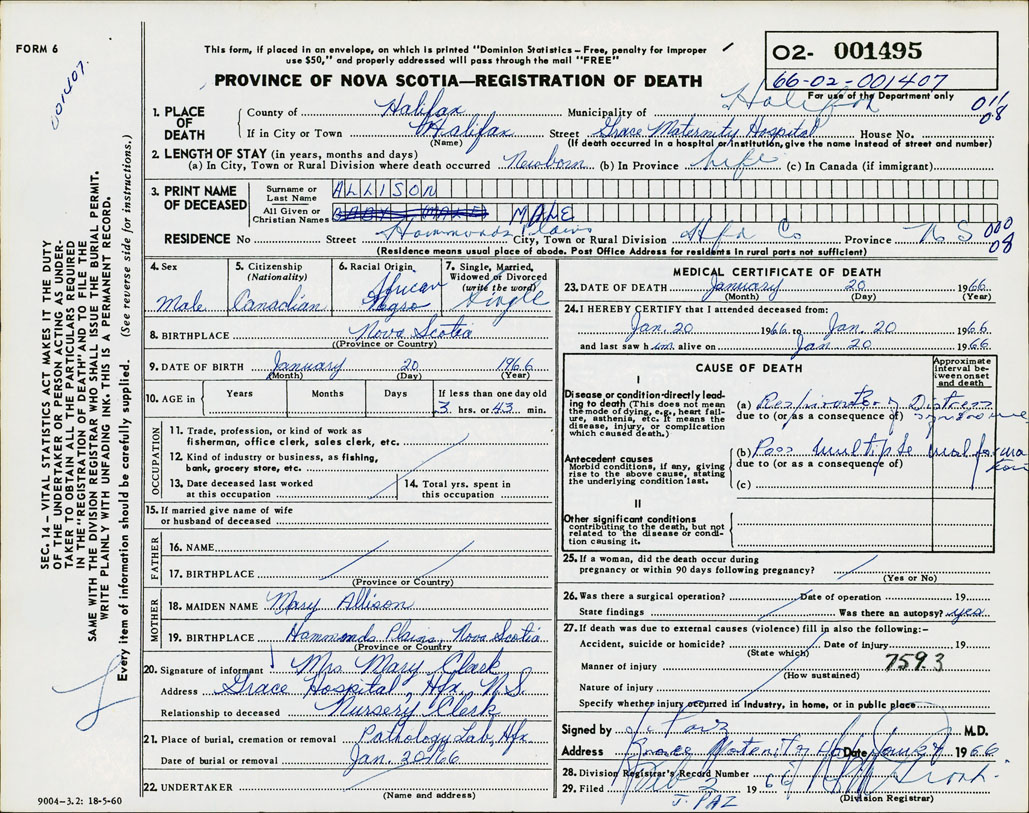 FORM 6
This form, if placed in an envelope, on which is printed "Dominion Statistics – Free, penalty for improper
use $50," and properly addressed will pass through the mail "FREE"
PROVINCE OF NOVA SCOTIA—REGISTRATION OF DEATH
02- 001495
66-02-001407
For use of the Department only
001407.
011
08
1. PLACE OF DEATH
County of Halifax Municipality of Halifax
If in City or Town Halifax Street Grace Maternity Hospital House No.
(Name) (If death occurred in a hospital or institution, give the name instead of street and number)
2. LENGTH OF STAY (in years, months and days)
(a) In City, Town or Rural Division where death occurred Newborn (b) In Province life (c) In Canada (if immigrant)
3. PRINT NAME OF DECEASED
Surname or Last Name ALLISON
All Given or Christian Names BABY MALE MALE
RESIDENCE No Street Hammonds Plains City, Town or Rural Division Hfx Co Province N S
000
08
(Residence means usual place of abode. Post Office Address for residents in rural parts not sufficient)
4. Sex Male
5. Citizenship (Nationality) Canadian
6. Racial Origin African Negro
7. Single, Married, Widowed or Divorced (write the word) Single
8. BIRTHPLACE Nova Scotia
(Province or Country)
9. DATE OF BIRTH January 20 1966
(Month) (Day) (Year)
10. AGE in Years Months Days If less than one day old
3 hrs. or 43 min.
OCCUPATION
11. Trade, profession, or kind of work as
fisherman, office clerk, sales clerk, etc.
12. Kind of industry or business, as fishing,
bank, grocery store, etc.
13. Date deceased last worked
at this occupation
14. Total yrs. spent in
this occupation
15. If married give name of wife
or husband of deceased
FATHER
16. NAME
17. BIRTHPLACE
(Province or Country)
MOTHER
18. MAIDEN NAME Mary Allison
19. BIRTHPLACE Hammonds Plains, Nova Scotia
(Province or Country)
20. Signature of informant Mrs. Mary Clark
Address Grace Hospital, Hfx, N.S.
Relationship to deceased Nursery Clerk
21. Place of burial, cremation or removal Pathology Lab, Hfx
Date of burial or removal Jan. 20/66
22. UNDERTAKER
(Name and address)
9004-3.2: 18-5-60
MEDICAL CERTIFICATE OF DEATH
23. DATE OF DEATH January 20 1966
(Month) (Day) (Year)
24. I HEREBY CERTIFY that I attended deceased from:
Jan. 20 1966 to Jan. 20 1966
and last saw him alive on Jan. 20 1966
CAUSE OF DEATH
Approximate interval between onset and death
I
Disease or condition directly leading to death (This does not mean
the mode of dying, e.g., heart failure, asthenia, etc. It means the
disease, injury, or complication
which caused death.)
(a) Respiratory Distress
due to (or as a consequence of) syndrome
Antecedent causes
Morbid conditions, if any, giving
rise to the above cause, stating
the underlying condition last.
(b) Poss multiple malformation
due to (or as a consequence of)
(c)
II
Other significant conditions
contributing to the death, but not
related to the disease or condition causing it.
25. If a woman, did the death occur during
pregnancy or within 90 days following pregnancy?
(Yes or No)
26. Was there a surgical operation? Date of operation 19
State findings Was there an autopsy? yes
27. If death was due to external causes (violence) fill in also the following:–
Accident, suicide or homicide? Date of injury 19
(State which)
Manner of injury 759.3
(How sustained)
Nature of injury
Specify whether injury occurred in industry, in home, or in public place
Signed by J. Paz M.D.
Address Grace Maternity Date 1966
28. Division Registrar's Record Number
29. Filed Feb 2 1966
(Division Registrar)
J. PAZ
SEC. 14 – VITAL STATISTICS ACT MAKES IT THE DUTY
OF THE UNDERTAKER OR PERSON ACTING AS UNDER-
TAKER TO OBTAIN ALL THE PARTICULARS REQUIRED
IN THE "REGISTRATION OF DEATH" AND TO FILE THE
SAME WITH THE DIVISION REGISTRAR WHO SHALL ISSUE THE BURIAL PERMIT.
WRITE PLAINLY WITH UNFADING INK. THIS IS A PERMANENT RECORD.
Every item of information should be carefully supplied. (See reverse side for instructions.)